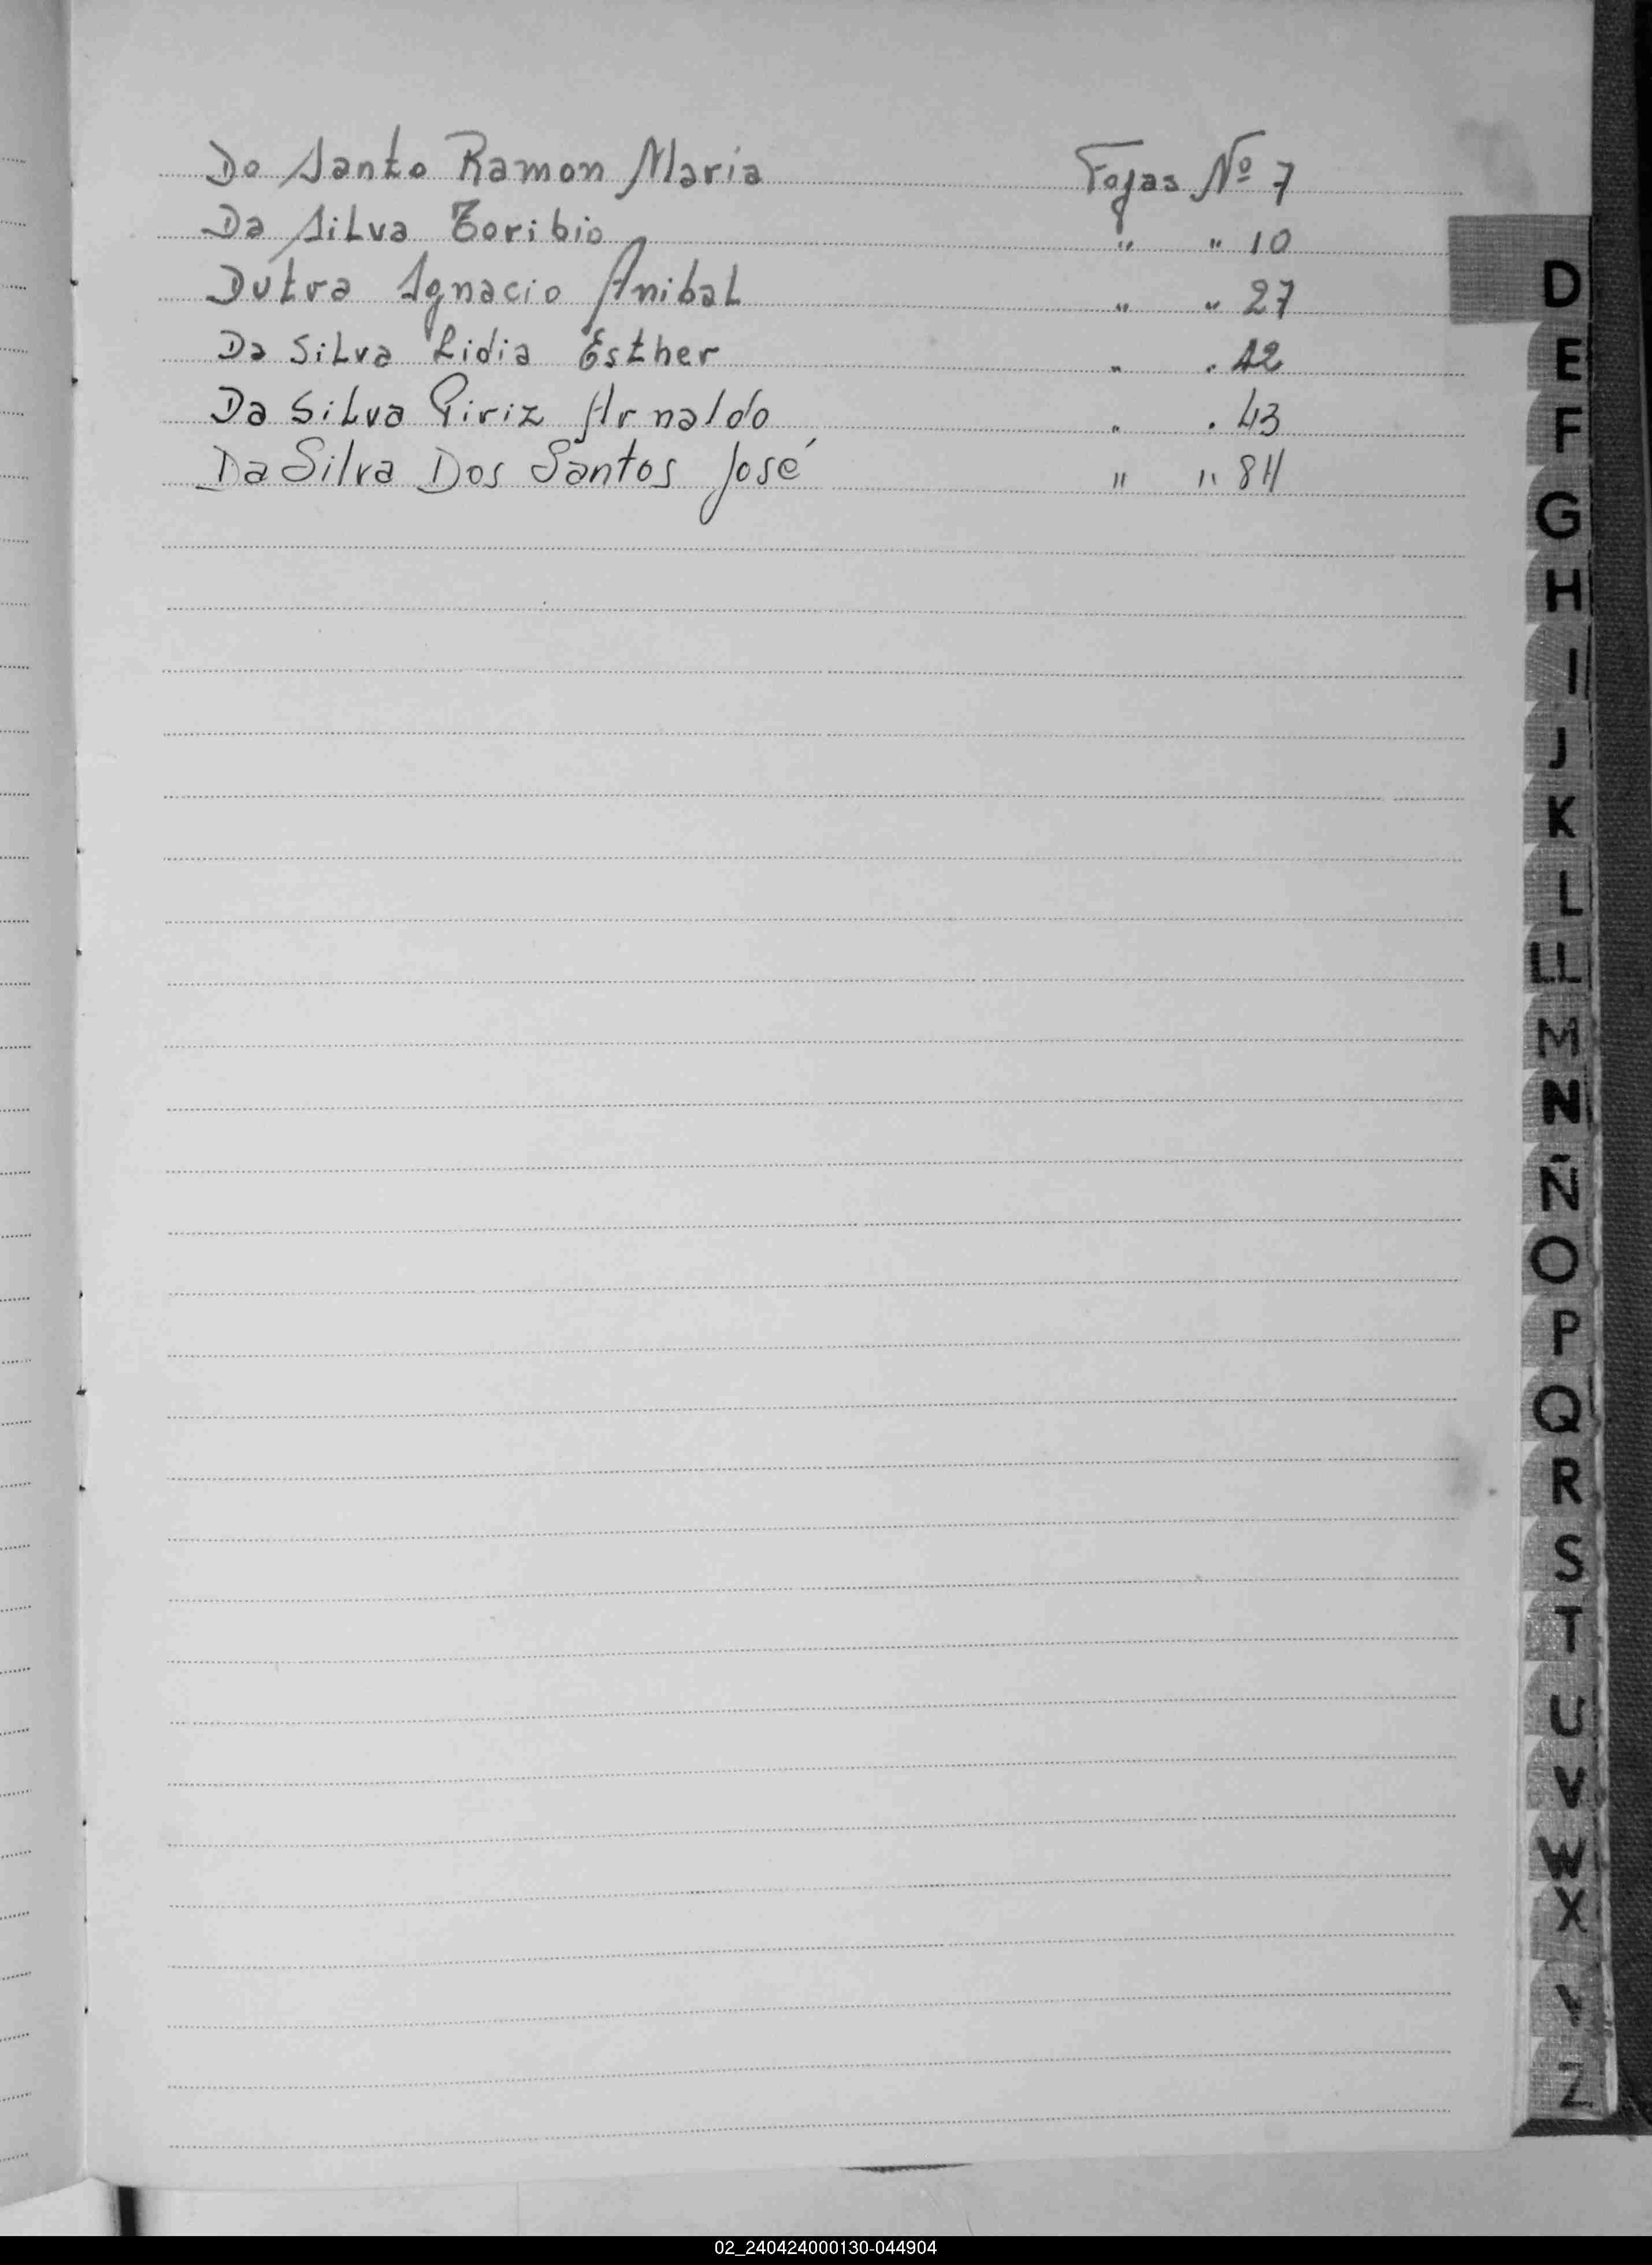 Do Santo Ramon Maria Fojas Nº 7
Da Silva Toribio " " 10
Dutra Ignacio Anibal " " 27
Da Silva Lidia Esther " " 42
Da Silva Piriz Arnaldo " " 43
Da Silva Dos Santos José " " 84
D
E
F
G
H
I
J
K
L
LL
M
N
Ñ
O
P
Q
R
S
T
U
V
W
X
Y
Z
02_240424000130-044904